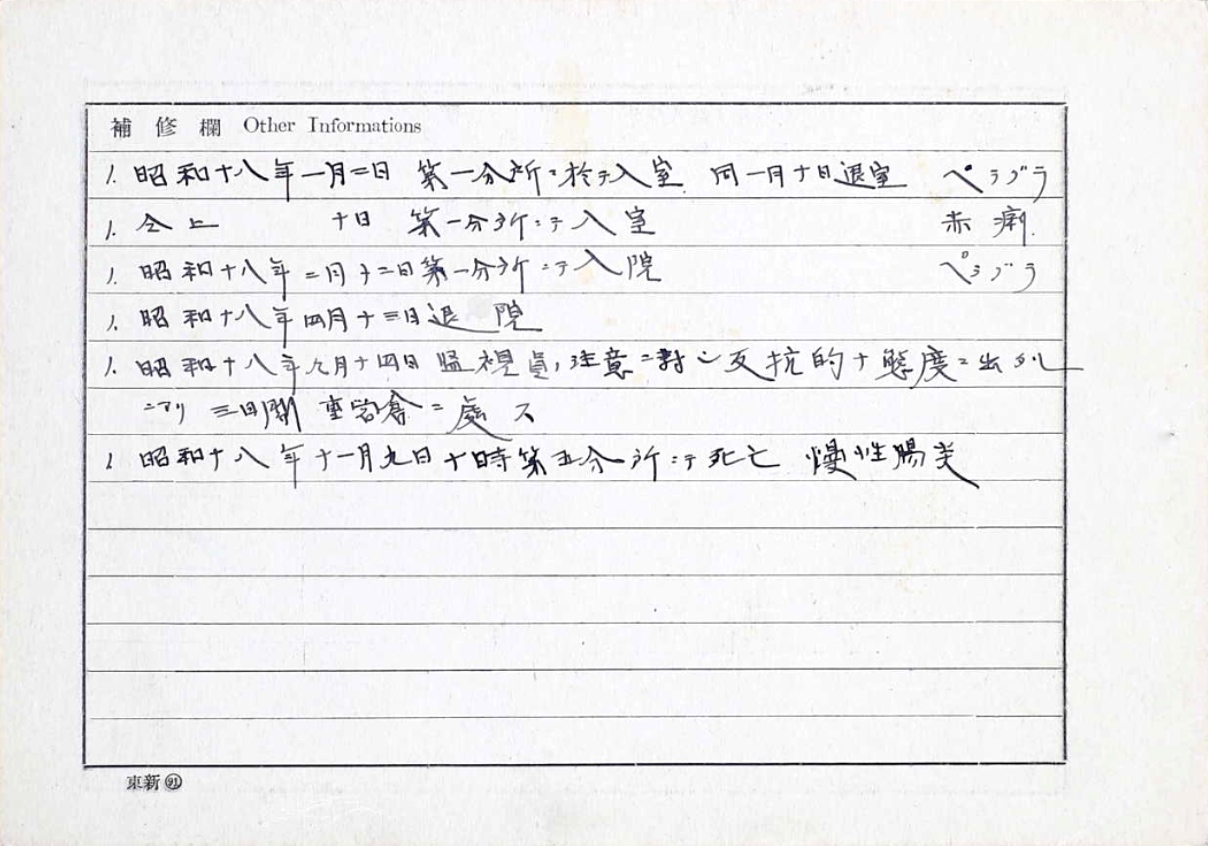 補修欄 Other Informations
1. 昭和十八年一月二日 第一分所ニ於テ入室 同一月十日退室 ペラグラ
1. 仝上 十日 第一分所ニテ入室 赤痢
1. 昭和十八年二月十二日第一分所ニテ入院 ペラグラ
1. 昭和十八年四月十三日退院
1. 昭和十八年九月十四日監視員ノ注意ニ對シ反抗的ナ態度ニ出タル
ニヨリ三日間重営倉ニ處ス
1. 昭和十八年十一月九日十時第五分所ニテ死亡 慢性腸炎
東新㉑